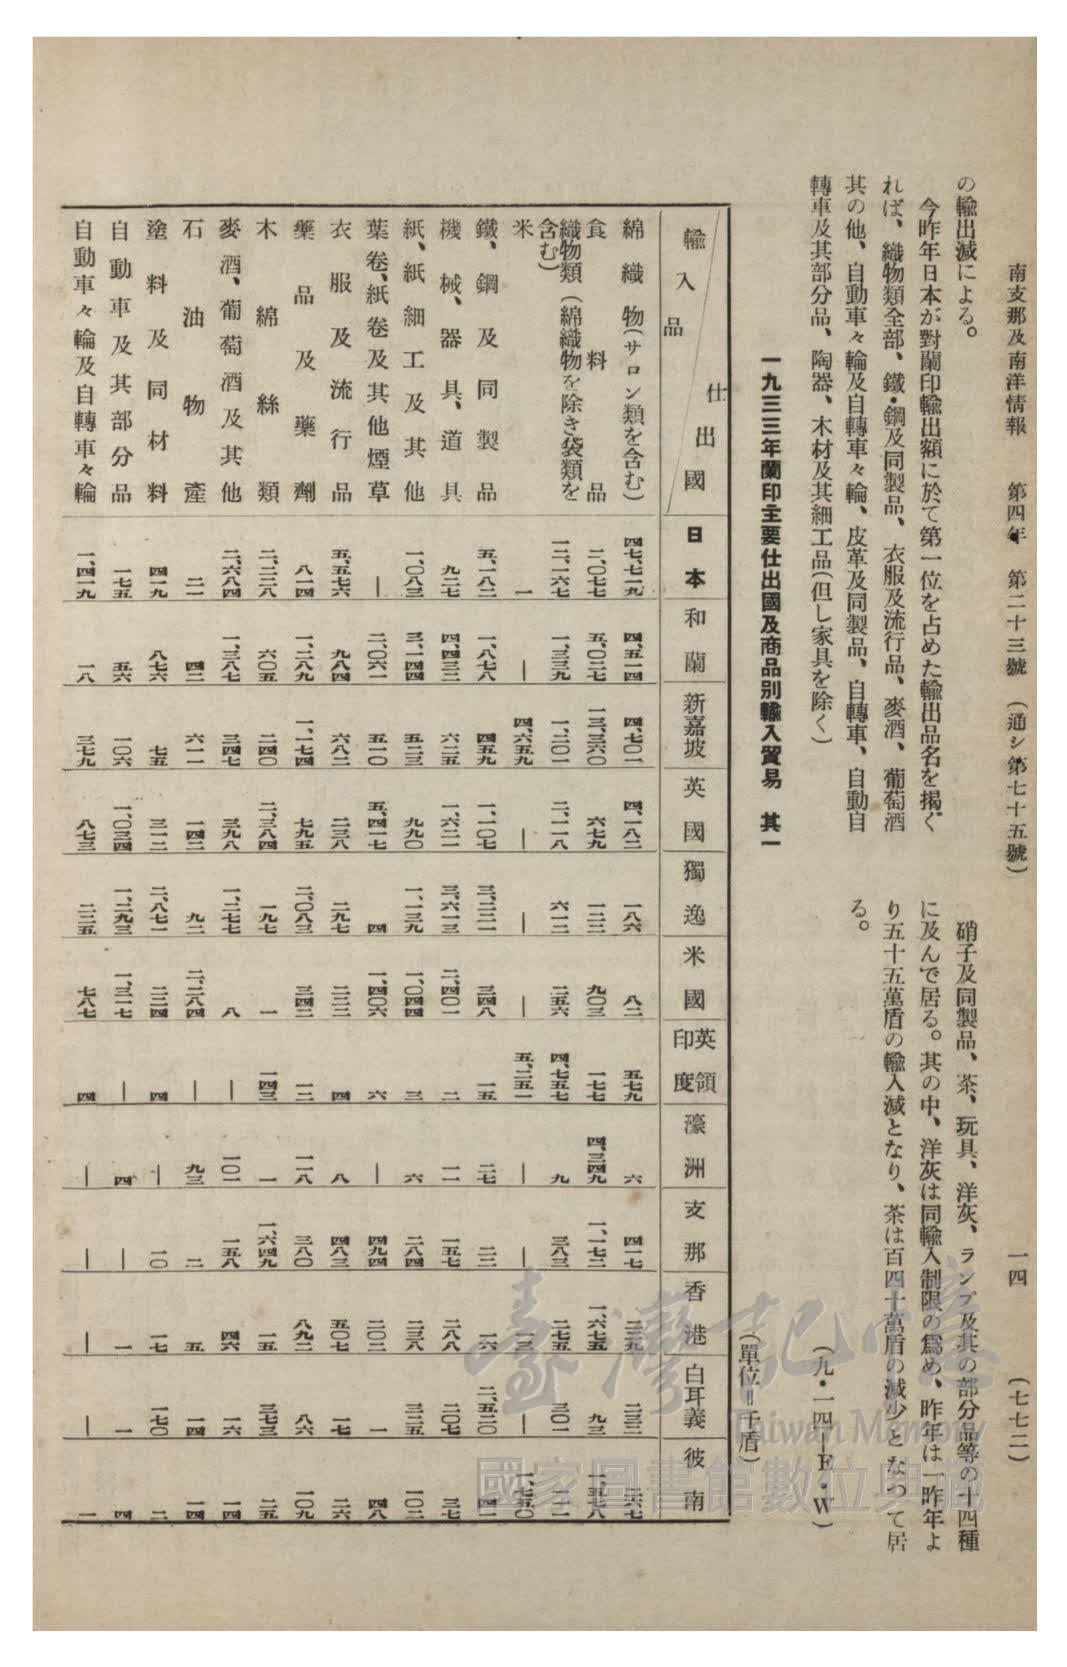 南支那及南洋情報　第四年　第二十三號　(通シ第七十五號)　一四　(七七二)
の輸出減による。
今昨年日本が對蘭印輸出額に於て第一位を占めた輸出品名を揭ぐ
れば、織物類全部、鐵・鋼及同製品、衣服及流行品、麥酒、葡萄酒
其の他、自動車々輪及自轉車々輪、皮革及同製品、自轉車、自動自
轉車及其部分品、陶器、木材及其細工品(但し家具を除く)
硝子及同製品、茶、玩具、洋灰、ランプ及其の部分品等の十四種
に及んで居る。其の中、洋灰は同輸入制限の爲め、昨年は一昨年よ
り五十五萬盾の輸入減となり、茶は百四十萬盾の減少となつて居
る。
(九・一四―E・W)
一九三三年蘭印主要仕出國及商品別輸入貿易　其一
(單位=千盾)
輸入品　仕出國　日本　和蘭　新嘉坡　英國　獨逸　米國　英領印度　濠洲　支那　香港　白耳義　彼南
綿織物(サロン類を含む)　四七、七一九　四、五一四　四、七〇一　四、一八二　一八六　八二　五七九　六　四一七　二三九　二三二　二六七
食料品　二、〇七七　五、〇二七　一三、三六〇　六七九　一二二　九〇三　一七七　四、三四九　一、一七二　一、六七五　九三　一、五七八
織物類(綿織物を除き袋類を含む)　一二、一六七　一、三三九　一、二〇一　二、一一八　六一二　二五六　四、七五七　九　三八三　二七五　三〇一　一二一
米　一　―　四、六五九　―　―　―　五、二五一　―　―　一三　　一、七五〇
鐵、鋼及同製品　五、一八二　一、八七八　四五九　一、一〇七　三、二二一　三四八　一五　二七　二二　一六　二、五二〇　四一
機械、器具、道具　九二七　四、四三二　六二五　一、六二一　三、六一三　二、四〇一　二　一一　一五七　二八八　二〇七　三七
紙、紙細工及其他　一、〇八三　三、一四四　五二三　九九〇　一、一三九　一、〇四四　三　六　二八四　二三八　三二五　一〇二
葉卷、紙卷及其他煙草　―　二、〇六一　五一〇　五、四一七　四　一、四〇六　六　―　四九四　二〇二　一　四八
衣服及流行品　五、五七六　九八四　六八二　二三八　二九七　二三二　四　八　四八三　五〇七　一七　二六
藥品及藥劑　八一四　一、二八九　一、一七四　七九五　二、〇八三　三四二　一二　一一八　三八〇　八九二　八六　一〇九
木綿絲類　二、二三八　六〇五　二四〇　二、三八四　一九七　一　一四三　一　一、六四九　一五　三七三　二五
麥酒、葡萄酒及其他　二、六八四　一、三八七　三四七　三九八　一、二七七　八　―　一〇一　一五八　四六　一六　一四
石油物產　二一　四二　六一一　一四二　九二　二、二八四　―　九三　二　五　一四　一四
塗料及同材料　四一九　八七六　七五　三一二　二、八七一　二三四　四　―　一〇　一七　一七〇　二
自動車及其部分品　一七五　五六　一〇六　一、〇三四　一、二九三　一、三一七　―　四　―　一　一　四
自動車々輪及自轉車々輪　一、四一九　一八　三七九　八七三　二三五　七八七　四　―　―　―　―　一
臺灣記憶
Taiwan Memory
國家圖書館數位典藏